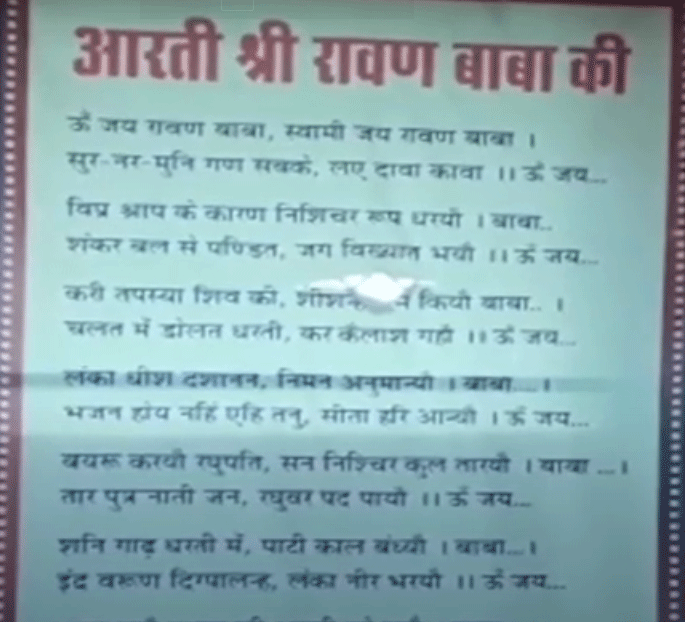 आरती श्री रावण बाबा की
ऊँ जय रावण बाबा, स्वामी जय रावण बाबा ।
सुर-नर-मुनि गण सबके, लए दावा कावा ।। ऊँ जय...
विप्र श्राप के कारण निशिचर रूप धरयौ । बाबा..
शंकर बल से पण्डित, जग विख्यात भयौ ।। ऊँ जय...
करी तपस्या शिव की, कियौ बाबा.. ।
चलत में डोलत धरती, कर कैलाश गहौ ।। ऊँ जय...
लंका धीश दशानन, निमन अनुमान्यौ । बाबा....।
भजन होय नहिं एहि तनु, सीता हरि आन्यौ । ऊँ जय...
बयरू करयौ रघुपति, सन निश्चिर कुल तारयौ । बाबा ...।
तार पुत्र नाती जन, रघुवर पद पायौ ।। ऊँ जय...
शनि गाढ़ धरती में, पाटी काल बंध्यौ । बाबा...।
इंद्र वरूण दिग्पालन्ह, लंका नीर भरयौ ।। ऊँ जय...